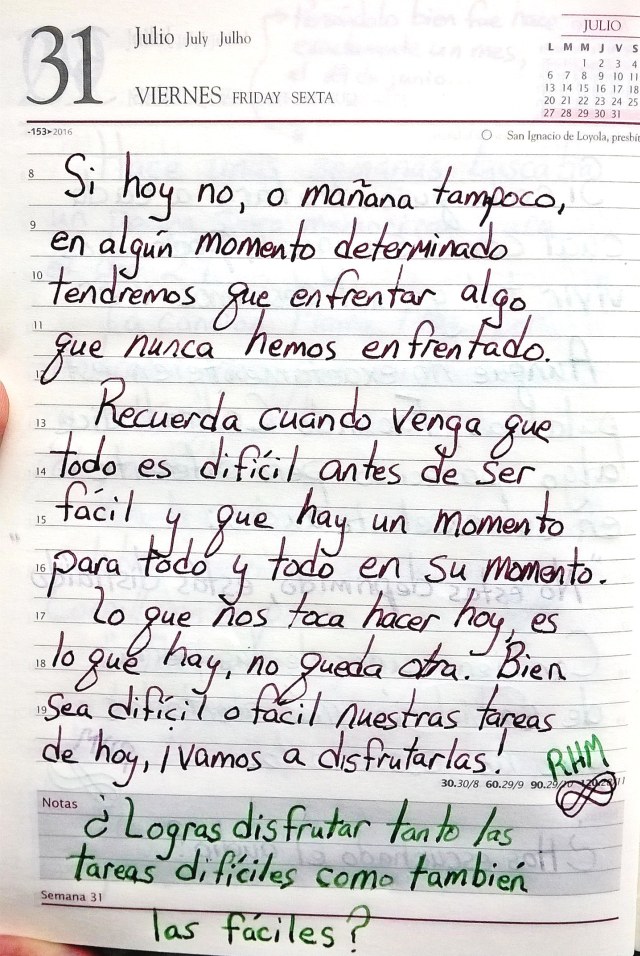 31
Julio July Julho
VIERNES FRIDAY SEXTA
JULIO
L M M J V S
1 2 3 4
6 7 8 9 10 11
13 14 15 16 17 18
20 21 22 23 24 25
27 28 29 30 31
-153▸2016
San Ignacio de Loyola, presbít
8 Si hoy no, o mañana tampoco,
9 en algún momento determinado
10 tendremos que enfrentar algo
11 que nunca hemos enfrentado.
12
13 Recuerda cuando venga que
14 todo es difícil antes de ser
15 fácil y que hay un momento
16 para todo y todo en su momento.
17 Lo que nos toca hacer hoy, es
18 lo que hay, no queda otra. Bien
19 sea difícil o fácil nuestras tareas
de hoy, ¡vamos a disfrutarlas!
RHM
30.30/8 60.29/9 90.29/10
Notas
¿Logras disfrutar tanto las
tareas difíciles como también
Semana 31
las fáciles?